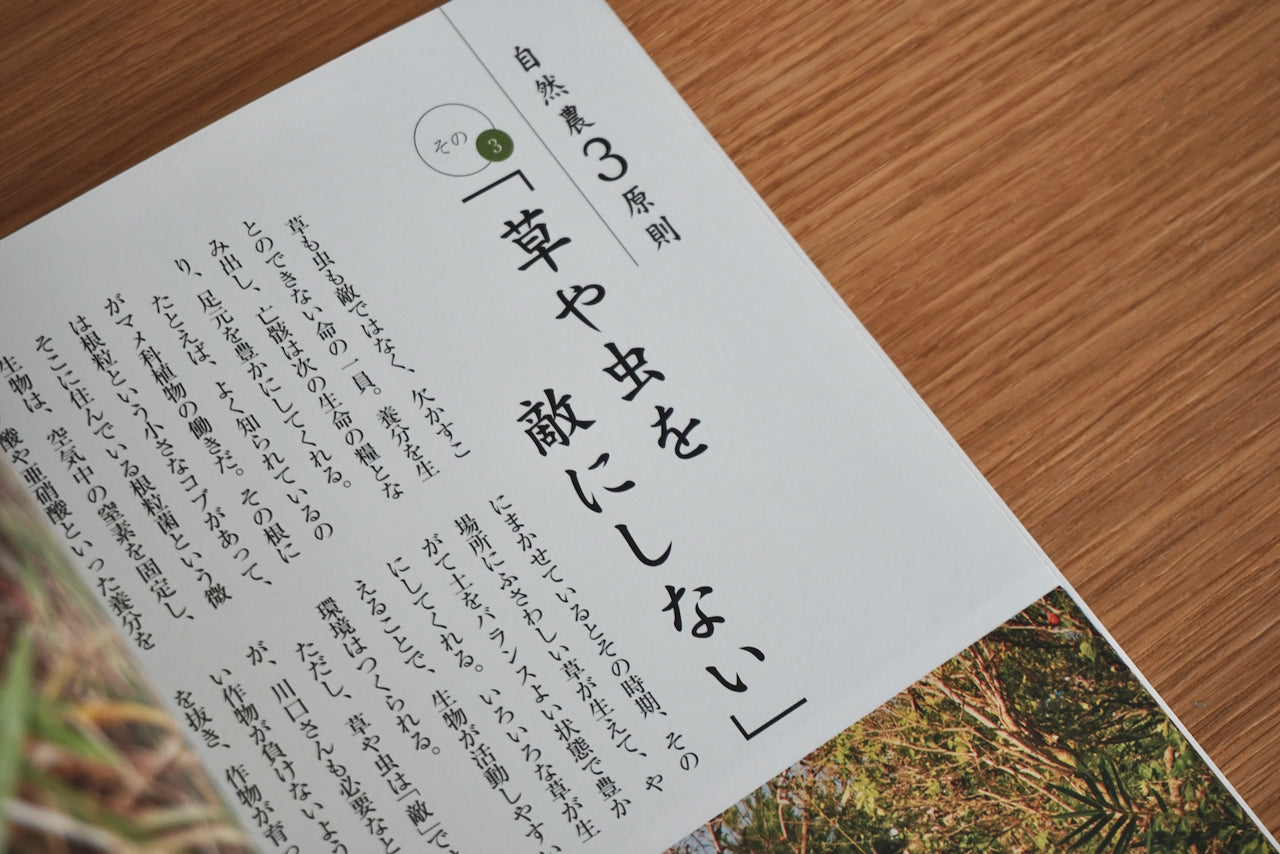 自然農3原則
その3
「草や虫を
敵にしない」
草も虫も敵ではなく、欠かすこ
とのできない命の一員。養分を生
み出し、亡骸は次の生命の糧とな
り、足元を豊かにしてくれる。
たとえば、よく知られているの
がマメ科植物の働きだ。その根に
は根粒という小さなコブがあって、
そこに住んでいる根粒菌という微
生物は、空気中の窒素を固定し、
酸や亜硝酸といった養分を
にまかせているとその時期、その
場所にふさわしい草が生えて、や
がて土をバランスよい状態で豊か
にしてくれる。いろいろな草が生
えることで、生物が活動しやすい
環境はつくられる。
ただし、草や虫は「敵」で
が、川口さんも必要なと
い作物が負けないよう
を抜き、作物が育っ